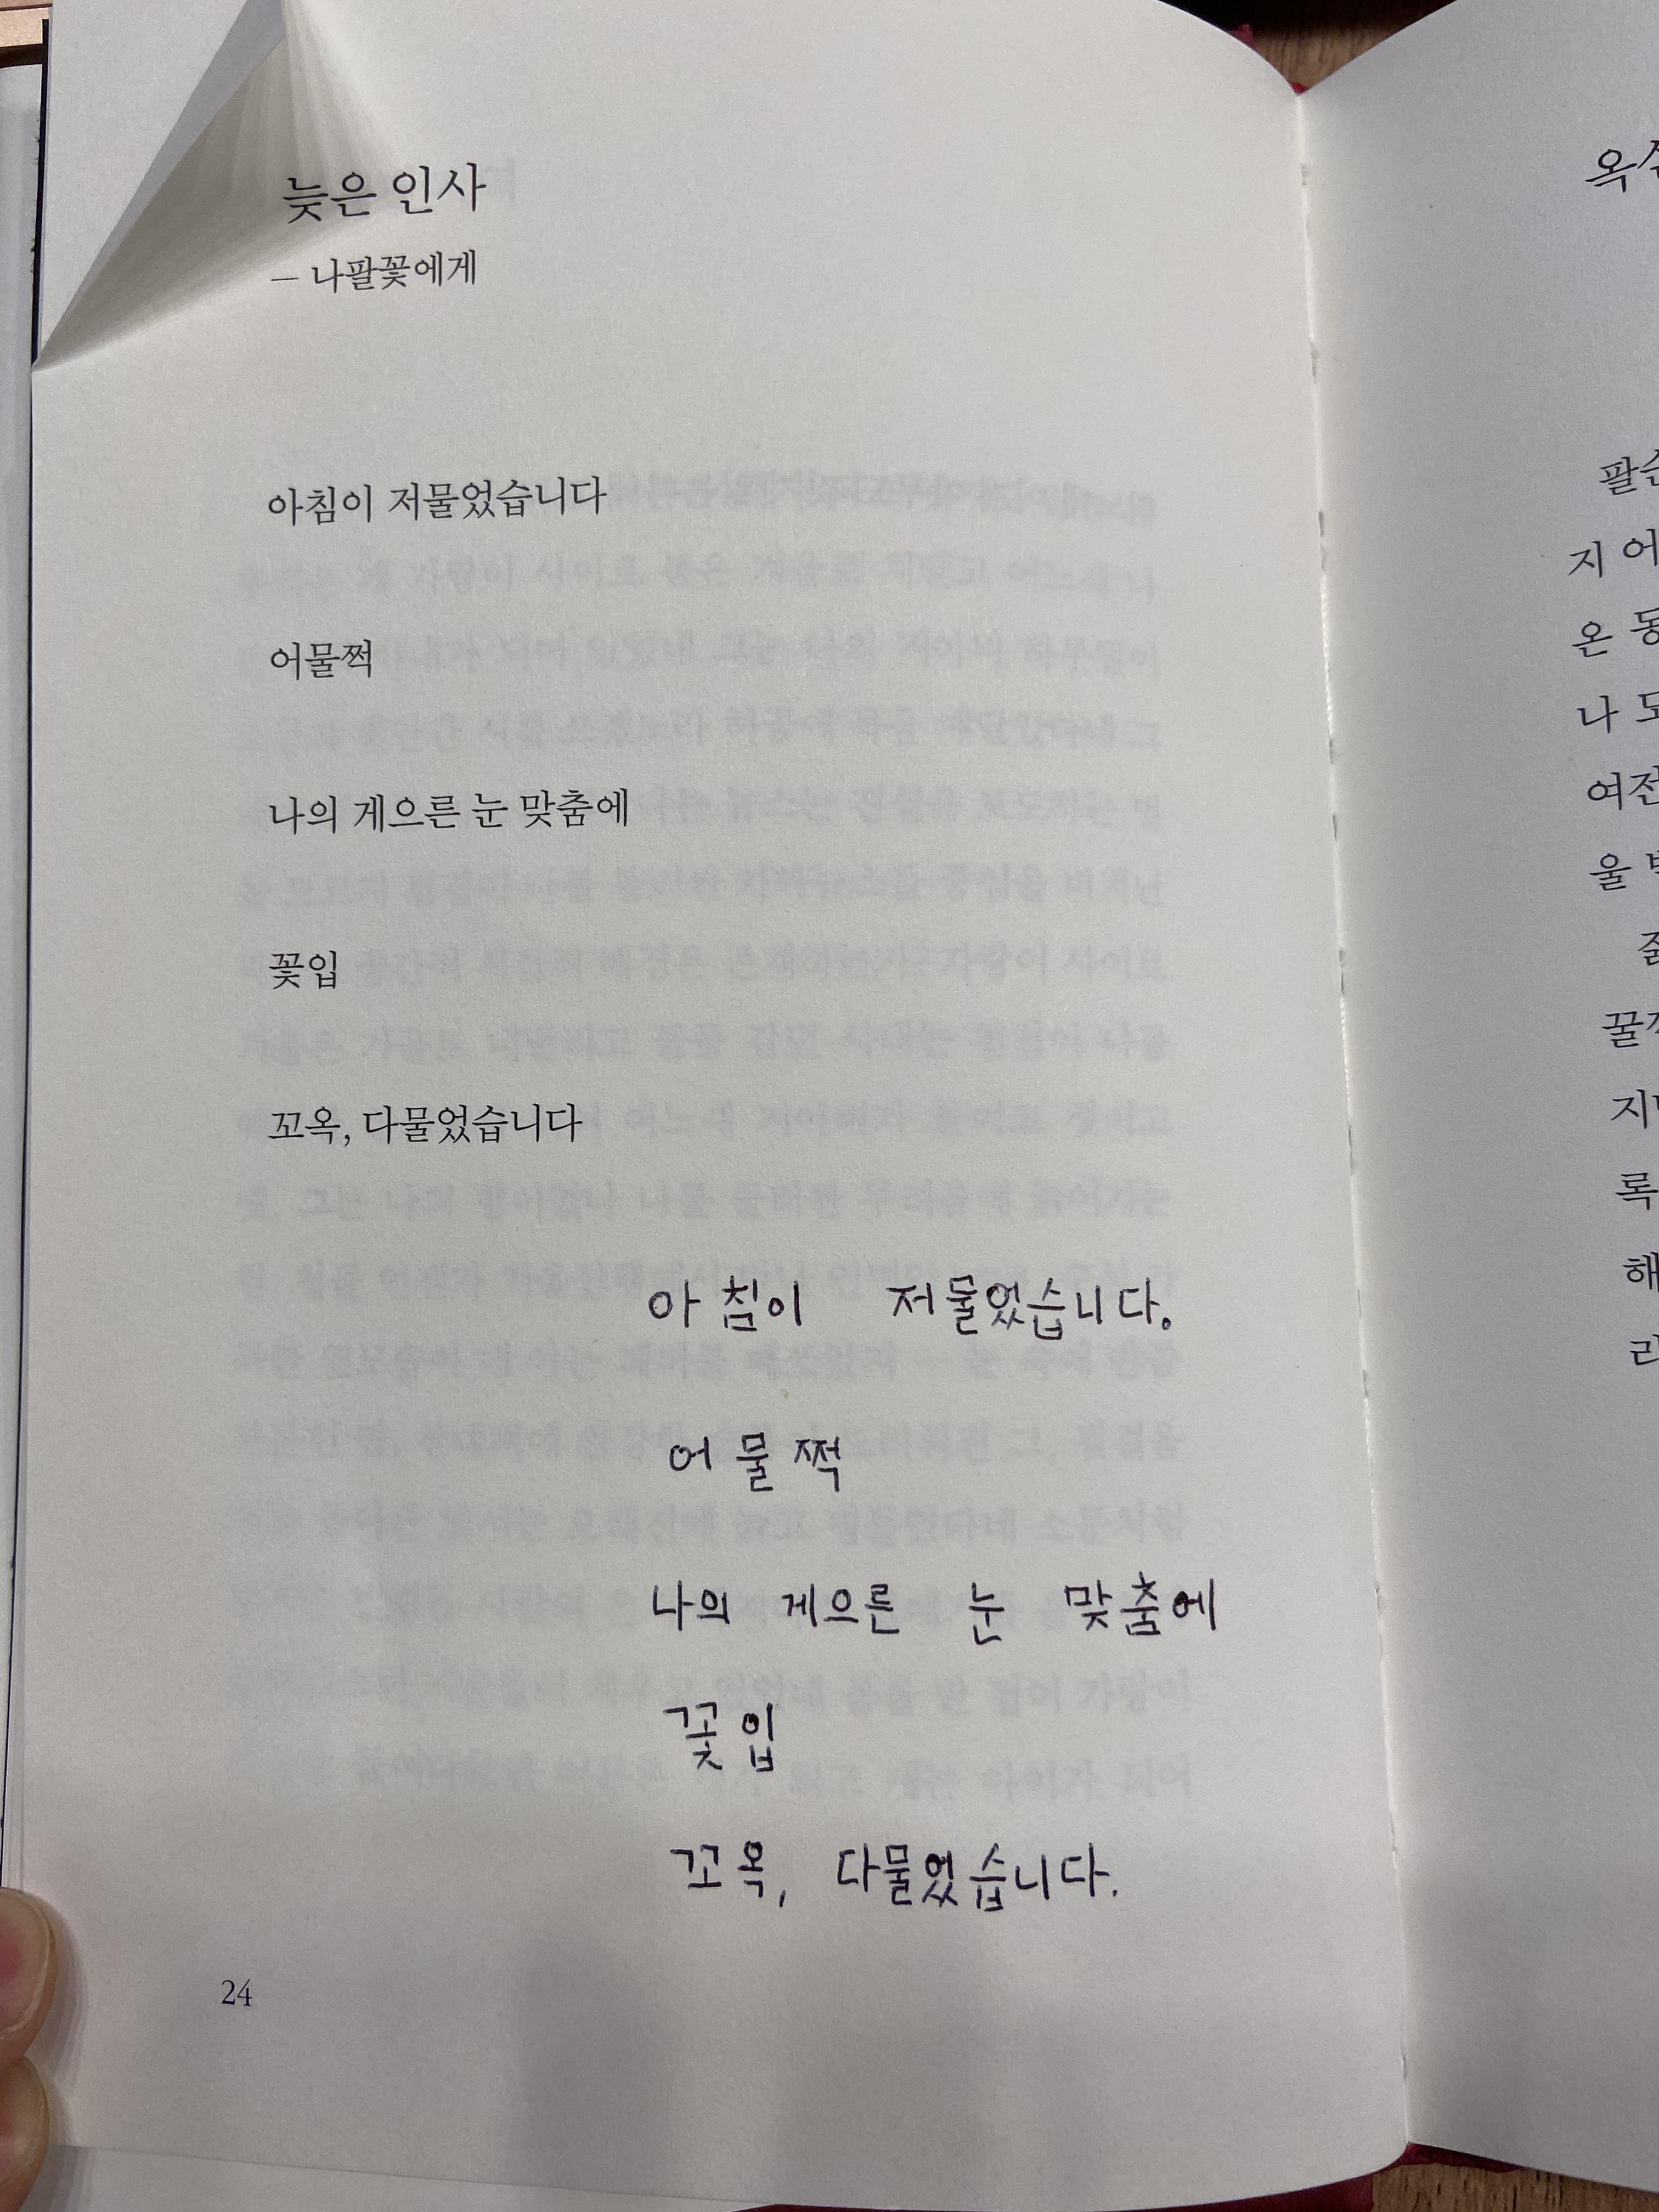 늦은 인사
— 나팔꽃에게
아침이 저물었습니다
어물쩍
나의 게으른 눈 맞춤에
꽃입
꼬옥, 다물었습니다
아침이 저물었습니다.
어물쩍
나의 게으른 눈 맞춤에
꽃입
꼬옥, 다물었습니다.
24
팔순
지 어
온 동
나 도
여전
울
꿀
지
록
해